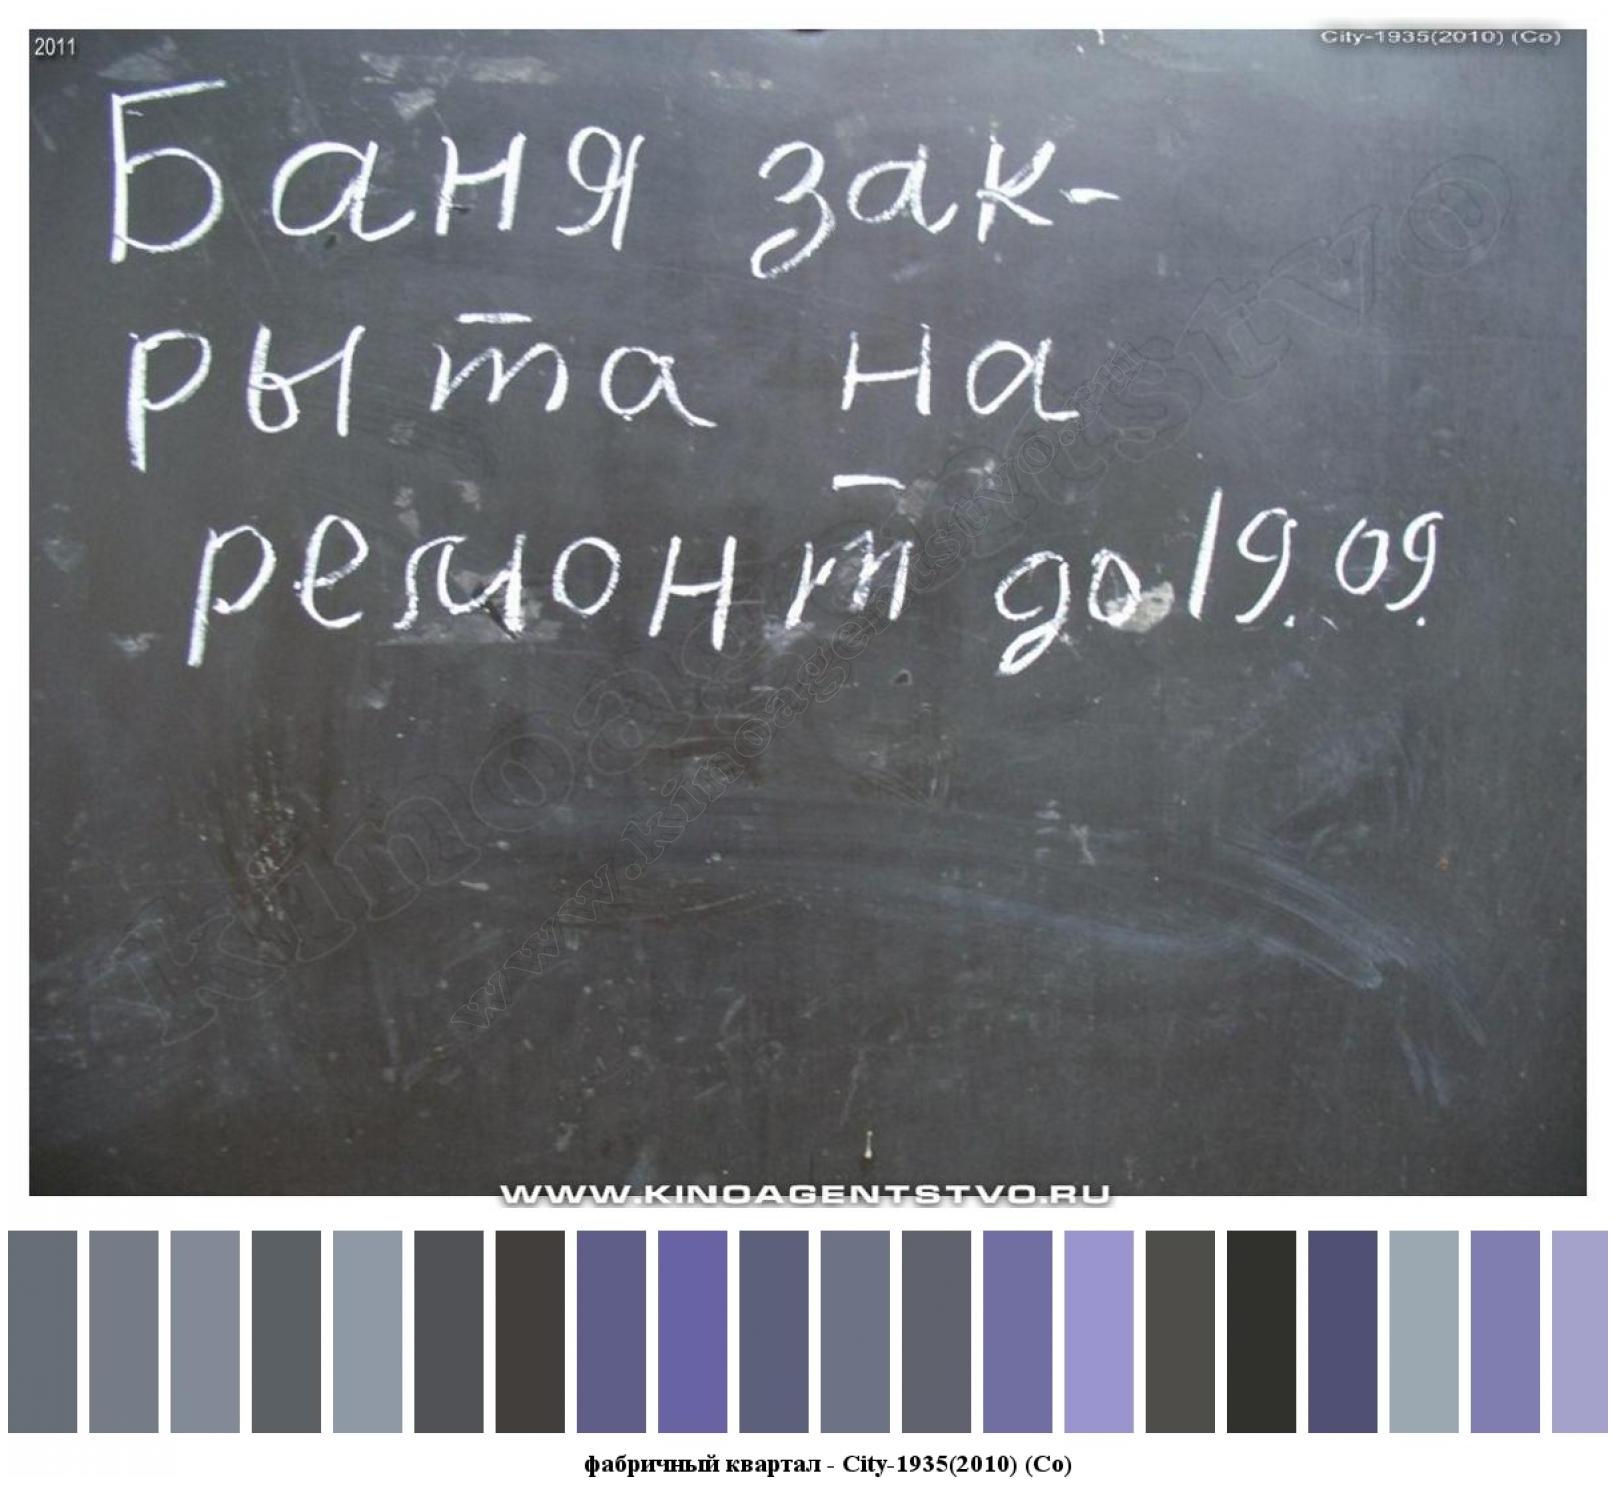 2011
City-1935(2010) (Co)
Баня зак-
рыта на
ремонт до 19.09.
kinoagentstvo
www.kinoagentstvo.ru
WWW.KINOAGENTSTVO.RU
фабричный квартал - City-1935(2010) (Co)